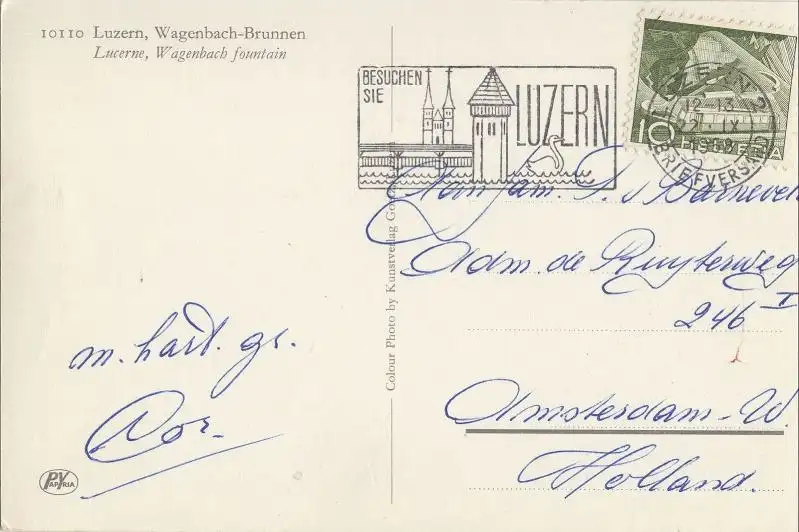 10110 Luzern, Wagenbach-Brunnen
Lucerne, Wagenbach fountain
BESUCHEN
SIE
LUZERN
LUZERN 2
12-13
22. IX
BRIEFVERSAND
10 HELVETIA
Aan fam. S. v Barneveld
Adm. de Ruyterweg
246 I
Amsterdam-W.
Holland.
m. hart. gr.
Cor.
Colour Photo by Kunstverlag
PV
PAPYRIA